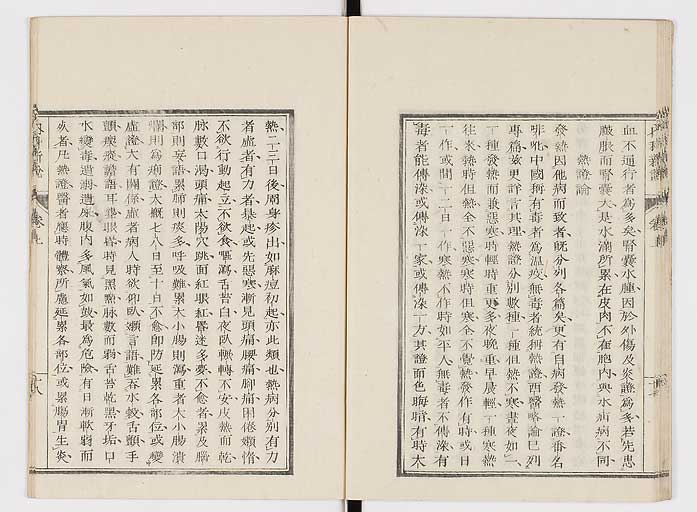 血不通行者為多矣腎囊水腫因於外傷及炎證為多若先患
臌脹而腎囊大是水滿所累在皮肉不在胞內與水疝病不同
熱證論
發熱因他病而致者旣分列各篇矣更有自病發熱一證番名
啡呢中國稱有毒者為溫疫無毒者統稱熱證西醫略論已列
專篇玆更詳言其理熱證分別數種一種但熱不寒晝夜如一
一種發熱而兼惡寒時輕時重更多夜晚重早晨輕一種寒熱
往來熱時但熱全不惡寒寒時但寒全不覺熱發作有時或日
一作或間一二日一作寒熱不作時如平人無毒者不傳染有
毒者能傳染或傳染一家或傳染一方其證面色晦暗有時大
熱二三日後周身疹出如麻痘初起亦此類也熱病分別有力
者虛者有力者暴起或先惡寒漸見頭痛腰痛腳痛困倦嬾惰
不欲行動起立不欲食嘔瀉舌苔白夜臥輾轉不安皮熱而乾
脉數口渴頭痛太陽穴跳面紅眼紅譽迷多夢不愈者累及腦
部則妄語累肺則痰多呼吸難累大小腸則瀉重者大小腸潰
爛則為痢證大概七八日至十日不愈卽防延累各部位或變
虛證大有關係虛者病人時欲仰臥嬾言語難吞水飲舌顫手
顫瘈瘲譫語耳聾眼昏時見黑點脉數而弱舌苔乾黑牙垢口
水變毒遺溺遺屎腹內多風氣如鼓最為危險有日漸軟弱而
效者凡熱證醫者應時體察所處延累各部位或累腸胃生炎